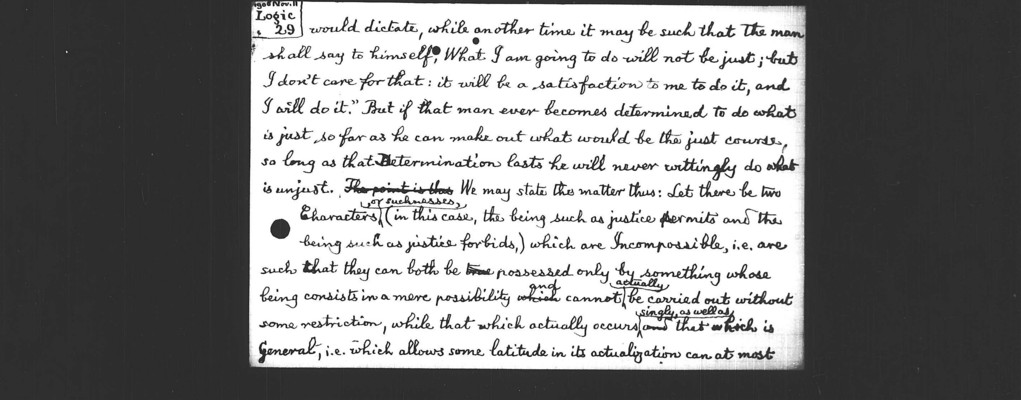 1908 Nov. 11
Logic
29
would dictate, while another time it may be such that the man
shall say to himself, "What I am going to do will not be just; but
I don't care for that: it will be a satisfaction to me to do it, and
I will do it." But if that man ever becomes determined to do what
is just, so far as he can make out what would be the just course,
so long as that Determination lasts he will never wittingly do what
is unjust. The point is this We may state the matter thus: Let there be two
or suchnesses,
Characters, (in this case, the being such as justice permits and the
being such as justice forbids,) which are Incompossible, i.e. are
such that they can both be true possessed only by something whose
and actually
being consists in a mere possibility which cannot be carried out without
singly, as well as
some restriction, while that which actually occurs and that which is
General, i.e. which allows some latitude in its actualization can at most